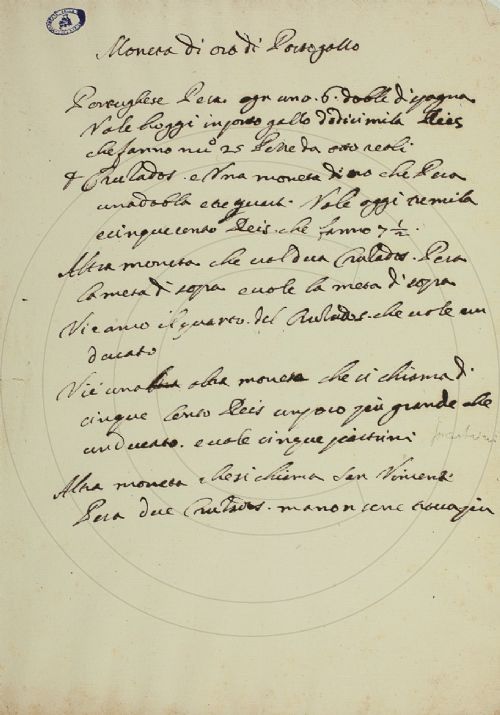 Moneta di oro di Portogallo
Portughese Pesa ogn uno . 6 . doble di spagna
Vale hoggi in porto gallo dodici mila Reis
che fanno nu.o 25 Pezze da otto reali
4 Crusados . e Una moneta di oro che Pesa
una dobla e tre quart. Vale oggi tremila
e cinque cento Reis . che fanno 7 1/2 .
Altra moneta che val dua Crusados . Pesa
la meta di sopra e vole la meta di sopra
Vi e anco il quarto . del Crusados . che vole un
ducato
Vi è una altra moneta che si chiama di
cinque Cento Reis un poco più grande che
un ducato . e vole cinque piastrini
Altra moneta che si chiama San Vincent
Pesa due Crusados . ma non se ne trova più